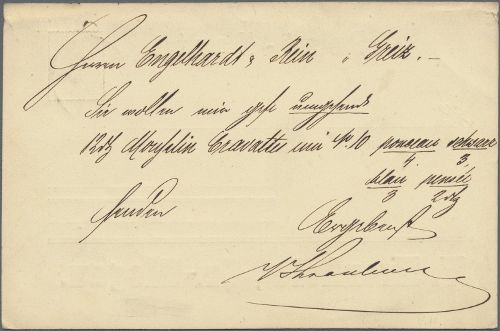 Herrn Engelhardt & Rein, Greiz.
Sie wollen mir gefl umgehend
12 dz Mousselin Cravattes No. 10 ponceau schwarz
4 3
blau pensée
3 2 dtz
senden
Ergebenst